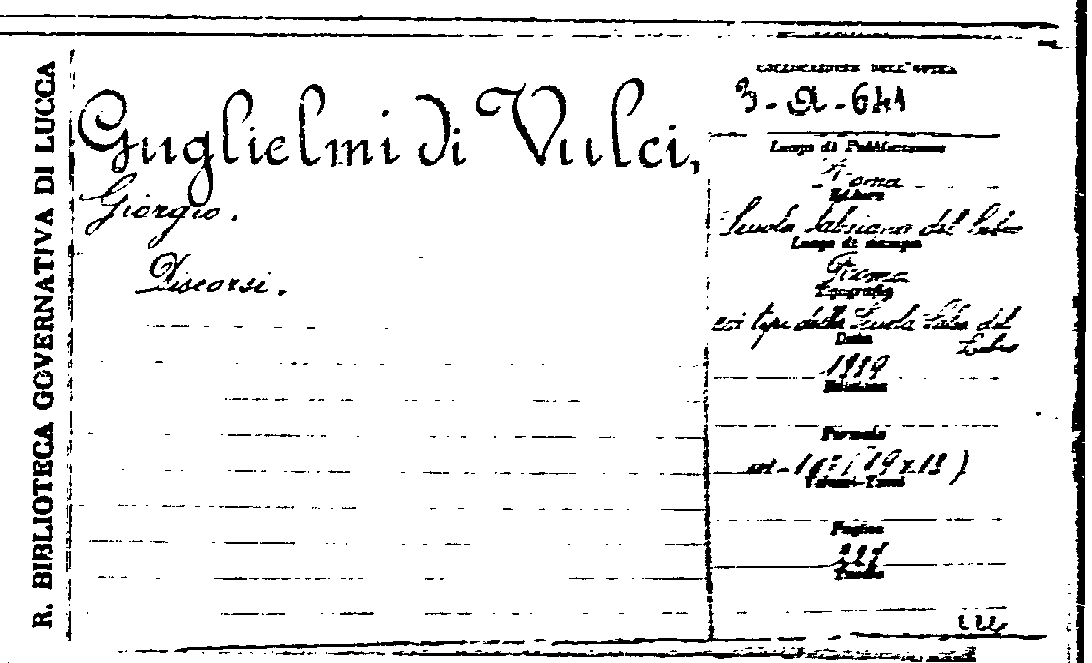 R. BIBLIOTECA GOVERNATIVA DI LUCCA
Guglielmi di Vulci,
Giorgio.
Discorsi.
COLLOCAZIONE DELL'OPERA
Luogo di Pubblicazione
Roma
Editore
Scuola Salesiana del Libro
Luogo di stampa
Roma
Tipografia
coi tipi della Scuola Sales del
Libro
Data
Edizione
Formato
Volumi-Tomi
Pagine